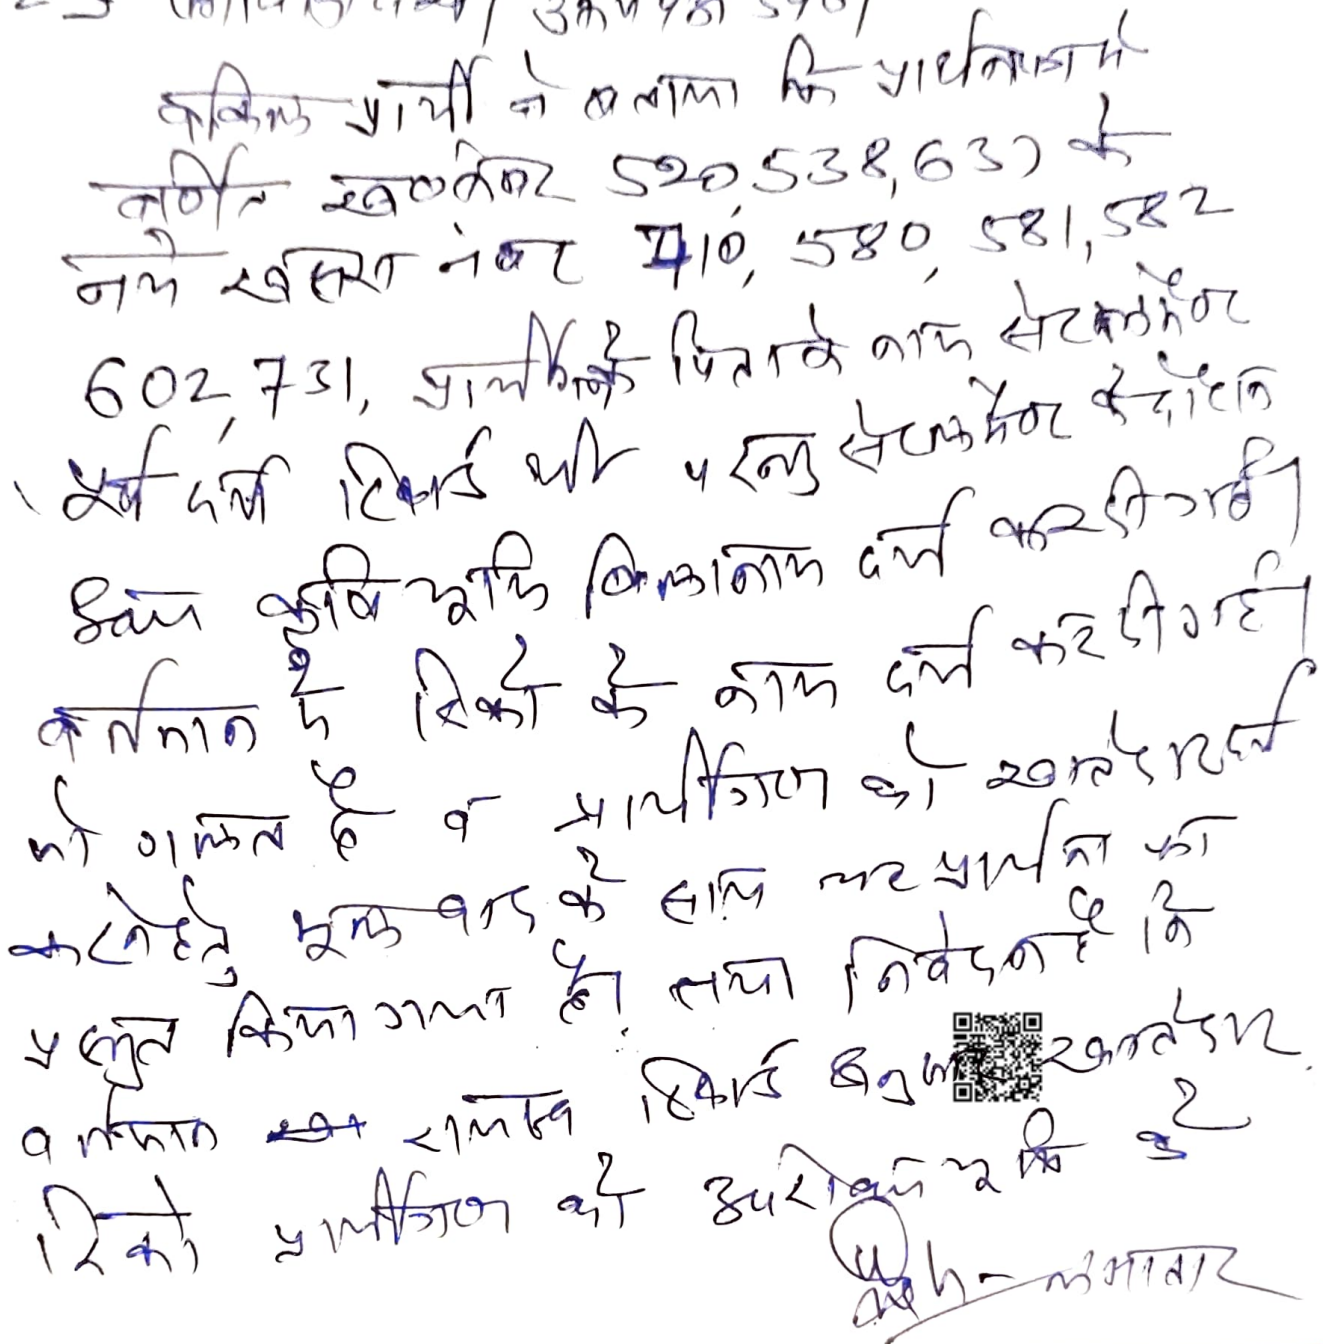 वकिल प्रार्थी ने बताया कि प्रार्थनापत्र मे
वर्णित ख०नंबर 520, 538, 637 के
नये खसरा नंबर 710, 580, 581, 582
602, 731, प्रार्थीगण के पिता के नाम सेटलमेंट
पूर्व दर्ज रिकार्ड थी परन्तु सेटलमेंट के दौरान
उक्त कृषि भूमि बिलानाम दर्ज कर दी गई।
वर्तमान में रिको के नाम दर्ज कर दी गई।
जो गलत है व प्रार्थीगण को खातेदार दर्ज
करने हेतु मूल वाद के साथ यह प्रार्थना का
प्रस्तुत किया गया है। तथा निवेदन है कि
वर्तमान राजस्व रिकार्ड अनुसार खातेदार
रिको प्रार्थीगण को उपरोक्त भूमि से
लगातार